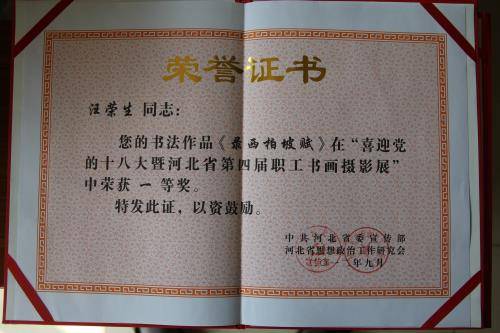 荣誉证书
汪荣生 同志：
您的书法作品《最西柏坡赋》在“喜迎党
的十八大暨河北省第四届职工书画摄影展”
中荣获 一 等奖。
特发此证，以资鼓励。
中共河北省委宣传部
河北省思想政治工作研究会
二〇一二年九月